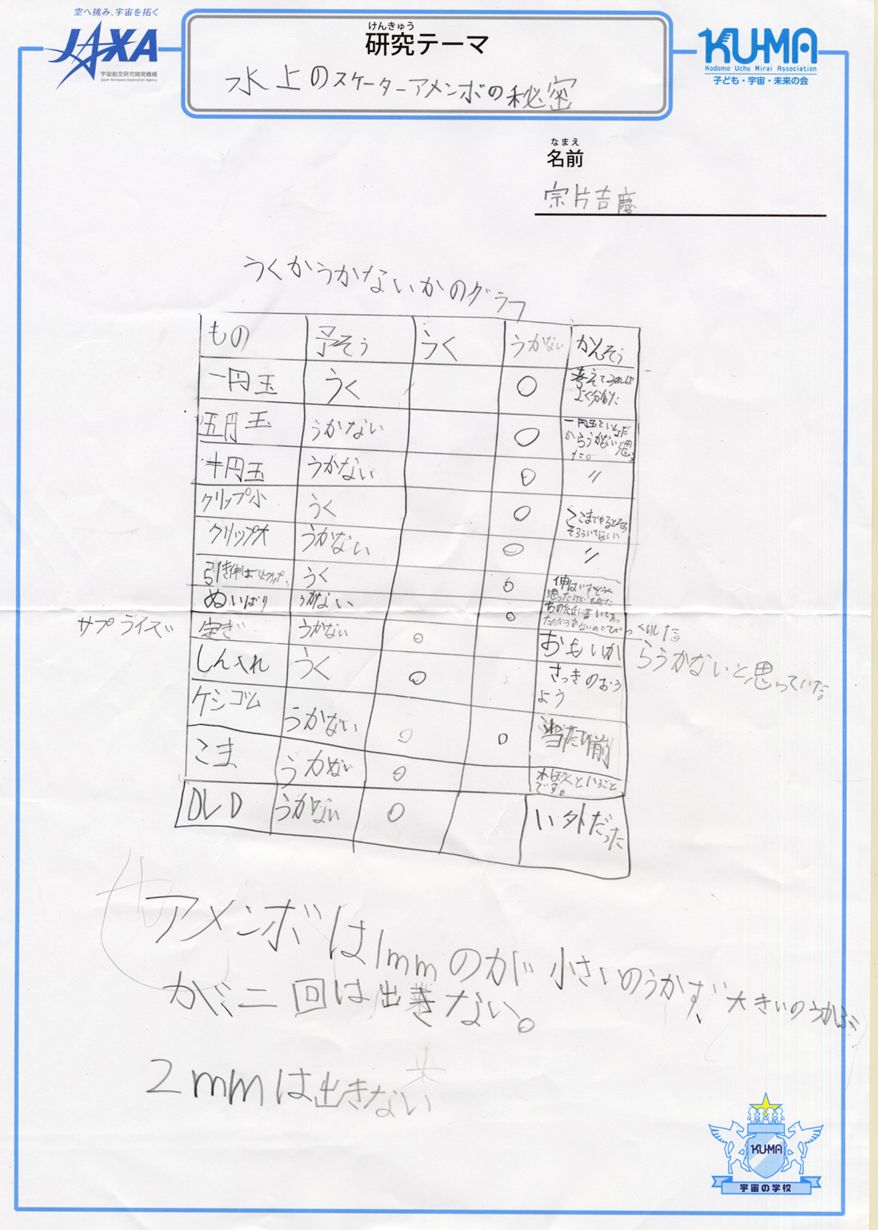 空へ挑み、宇宙を拓く
JAXA
宇宙航空研究開発機構
Japan Aerospace Exploration Agency
けんきゅう
研究テーマ
水上のスケーターアメンボの秘密
KU-MA
Kodomo Uchu Mirai Association
子ども・宇宙・未来の会
なまえ
名前
宗片吉慶
うくかうかないかのグラフ
もの 予そう うく うかない かんそう
一円玉 うく ○ 考えてみれば
よく分かった
五円玉 うかない ○ 一円玉
からうかないと思っ
た。
十円玉 うかない ○ 〃
クリップ小 うく ○ ここまで
クリップ大 うかない ○ 〃
うく ○
ぬいばり うかない ○
サプライズ 定ぎ うかない ○ おもいか
らうかないと思っていた。
しん入れ うく ○ さっきのおう
よう
ケシゴム うかない ○ ○ 当たり前
こま うかない ○ ということ
です。
DVD うかない ○ い外だった
アメンボは1mmのが小さいのうかず、大きいのうかぶ
が、二回は出きない。
2mmは出きない
KU-MA
宇宙の学校